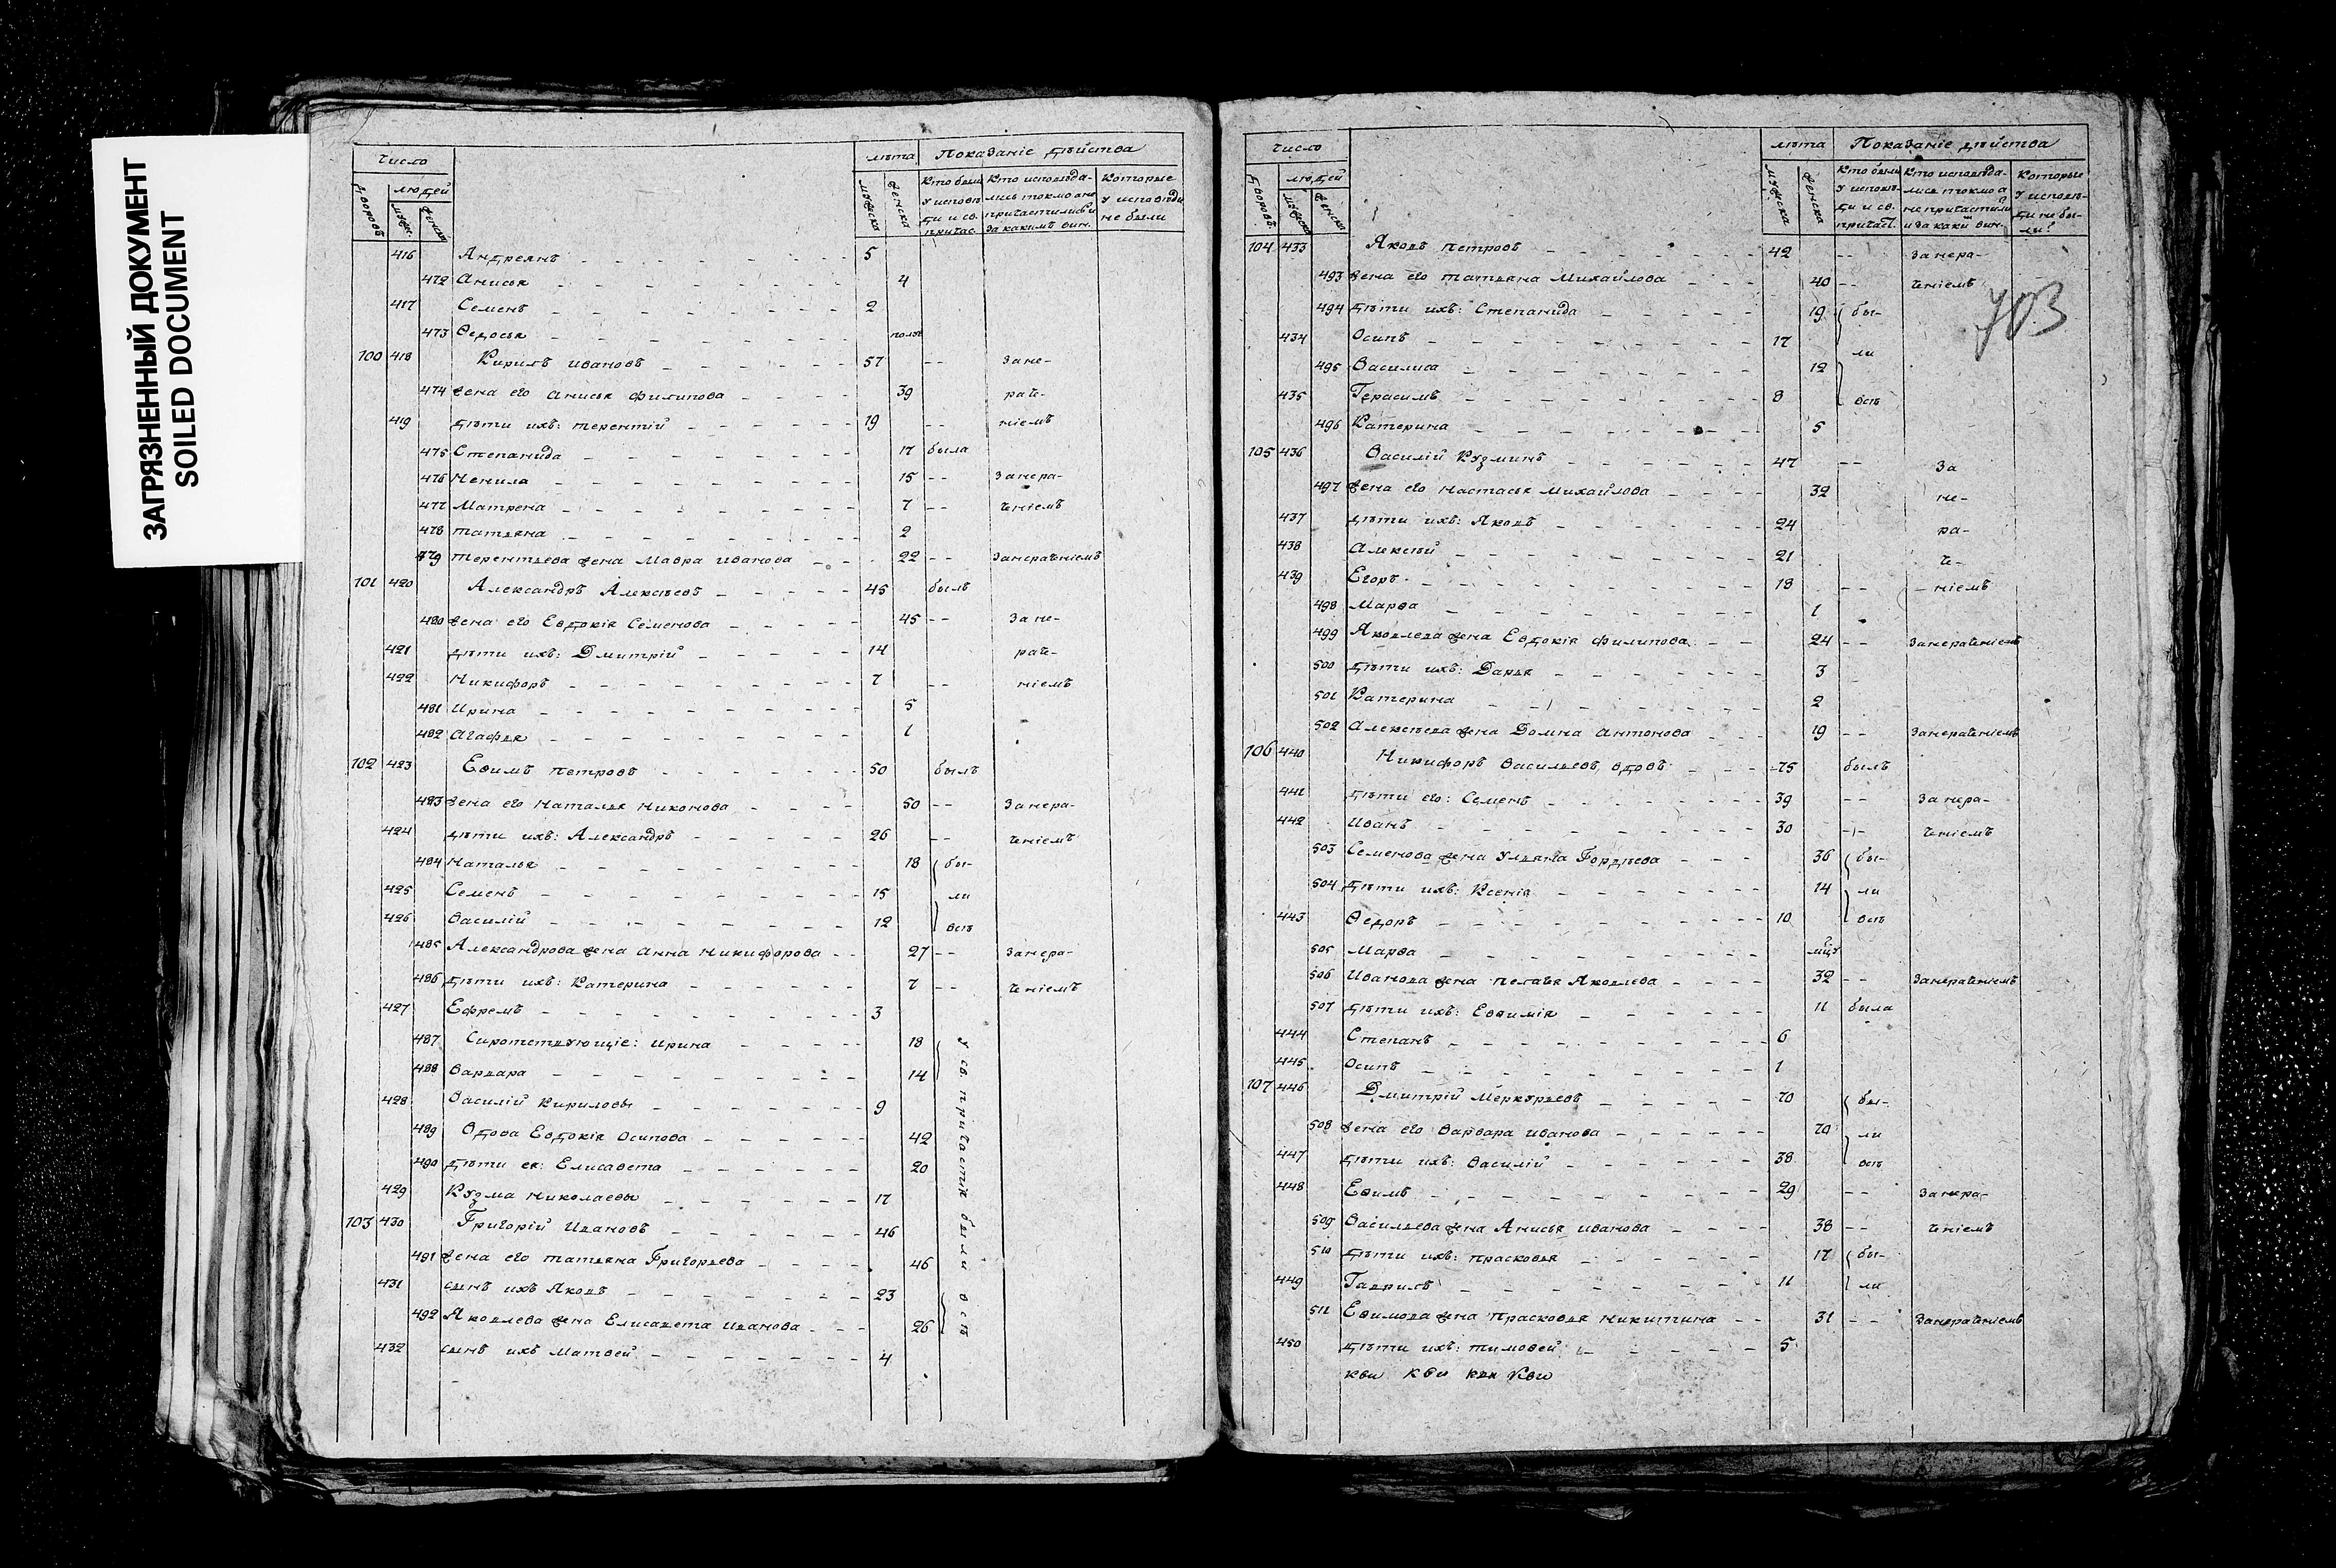 ЗАГРЯЗНЕННЫЙ ДОКУМЕНТ
SOILED DOCUMENT
Число лѣта Показанїе дѣйства
дворовъ людей мужес. женска мужеска женска
Кто были у исповѣди и св. причас.
Кто исповѣдались токмо а не причастились и за какимъ вин.
Которые у исповѣди не были
416 Андреянъ 5
472 Анисья 4
417 Семенъ 2
473 Ѳедосья полъ
100 418 Кирилъ Ивановъ 57 -- Зане-
474 жена его Анисья Филипова 39 рач-
419 дѣти ихъ: Терентїй 19 -- нїемъ
475 Степанида 17 была
476 Ненила 15 -- Занера-
477 Матрена 7 -- ченїемъ
478 Татьяна 2
479 Терентьева жена Мавра Иванова 22 -- Занераченїемъ
101 420 Александръ Алексѣевъ 45 былъ
480 жена его Евдокїя Семенова 45 -- Зане-
421 дѣти ихъ: Дмитрїй 14 рач-
422 Никифоръ 7 -- нїемъ
481 Ирина 5
482 Агафья 1
102 423 Евимъ Петровъ 50 былъ
483 жена его Наталья Никонова 50 -- Занера-
424 дѣти ихъ: Александръ 26 -- ченїемъ
484 Наталья 18 бы-
425 Семенъ 15 ли
426 Василїй 12 всѣ
485 Александрова жена Анна Никифорова 27 -- Занера-
486 дѣти ихъ: Катерина 7 -- ченїемъ
427 Ефремъ 3
487 Сиротствующїе: Ирина 18
488 Варвара 14
428 Василїй Кириловы 9
489 Вдова Евдокїя Осипова 42
490 дѣти ея: Елисавета 20
429 Кузма Николаевы 17
103 430 Григорїй Ивановъ 46
491 жена его Татьяна Григорьева 46
431 сынъ ихъ Яковъ 23
492 Яковлева жена Елисавета Иванова 26
432 сынъ ихъ Матвей 4
у св. причастїя были всѣ
Число лѣта Показанїе дѣйства
дворовъ людей мужеска женска мужеска женска
Кто были у исповѣди и св. причаст.
Кто исповѣдались токмо а не причастили и за каки вин.
Которые у исповѣди не были?
703
104 433 Яковъ Петровъ 42 -- Занера-
493 жена его Татьяна Михайлова 40 -- ченїемъ
494 дѣти ихъ: Степанида 19 бы-
434 Осипъ 17 ли
495 Василиса 12
435 Герасимъ 8 всѣ
496 Катерина 5
105 436 Василїй Кузминъ 47 -- За
497 жена его Настасья Михайлова 32 не-
437 дѣти ихъ: Яковъ 24 ра-
438 Алексѣй 21 че-
439 Егоръ 18 -- нїемъ
498 Марѳа 1
499 Яковлева жена Евдокїя Филипова 24 -- Занераченїемъ
500 дѣти ихъ: Дарья 3
501 Катерина 2
502 Алексѣева жена Домна Антонова 19 -- Занераченїемъ
106 440 Никифоръ Васильевъ, вдовъ 75 былъ
441 дѣти его: Семенъ 39 -- Занера-
442 Иванъ 30 -- ченїемъ
503 Семенова жена Ульяна Гордѣева 36 бы-
504 дѣти ихъ: Ксенїя 14 ли
443 Ѳедоръ 10 всѣ
505 Марѳа
506 Иванова жена Пелагея Яковлева 32 -- Занераченїемъ
507 дѣти ихъ: Евѳимїя 11 была
444 Степанъ 6
445 Осипъ 1
107 446 Дмитрїй Меркурьевъ 70 бы-
508 жена его Варвара Иванова 70 ли
447 дѣти ихъ: Василїй 38 всѣ
448 Евимъ 29 -- Занера-
509 Васильева жена Анисья Иванова 38 -- ченїемъ
510 дѣти ихъ: Прасковья 17 бы-
449 Гаврилъ 11 ли
511 Евимова жена Прасковья Никитина 31 -- Занераченїемъ
450 дѣти ихъ: Тимоѳей 5